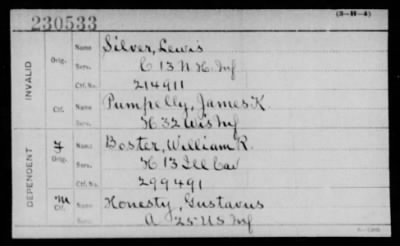 (3-H-4)
230533
INVALID
Orig.
Name Silver, Lewis
Serv. C 13 N H Inf
Ctf. No. 214911
Ctf.
Name Pumpelly, James K.
Serv. K 32 Wis Inf
DEPENDENT
F
Orig.
Name Boster, William R.
Serv. K 13 Ill Cav
Ctf. No. 299491
M
Ctf.
Name Honesty, Gustavus
Serv. A 25 U S Inf